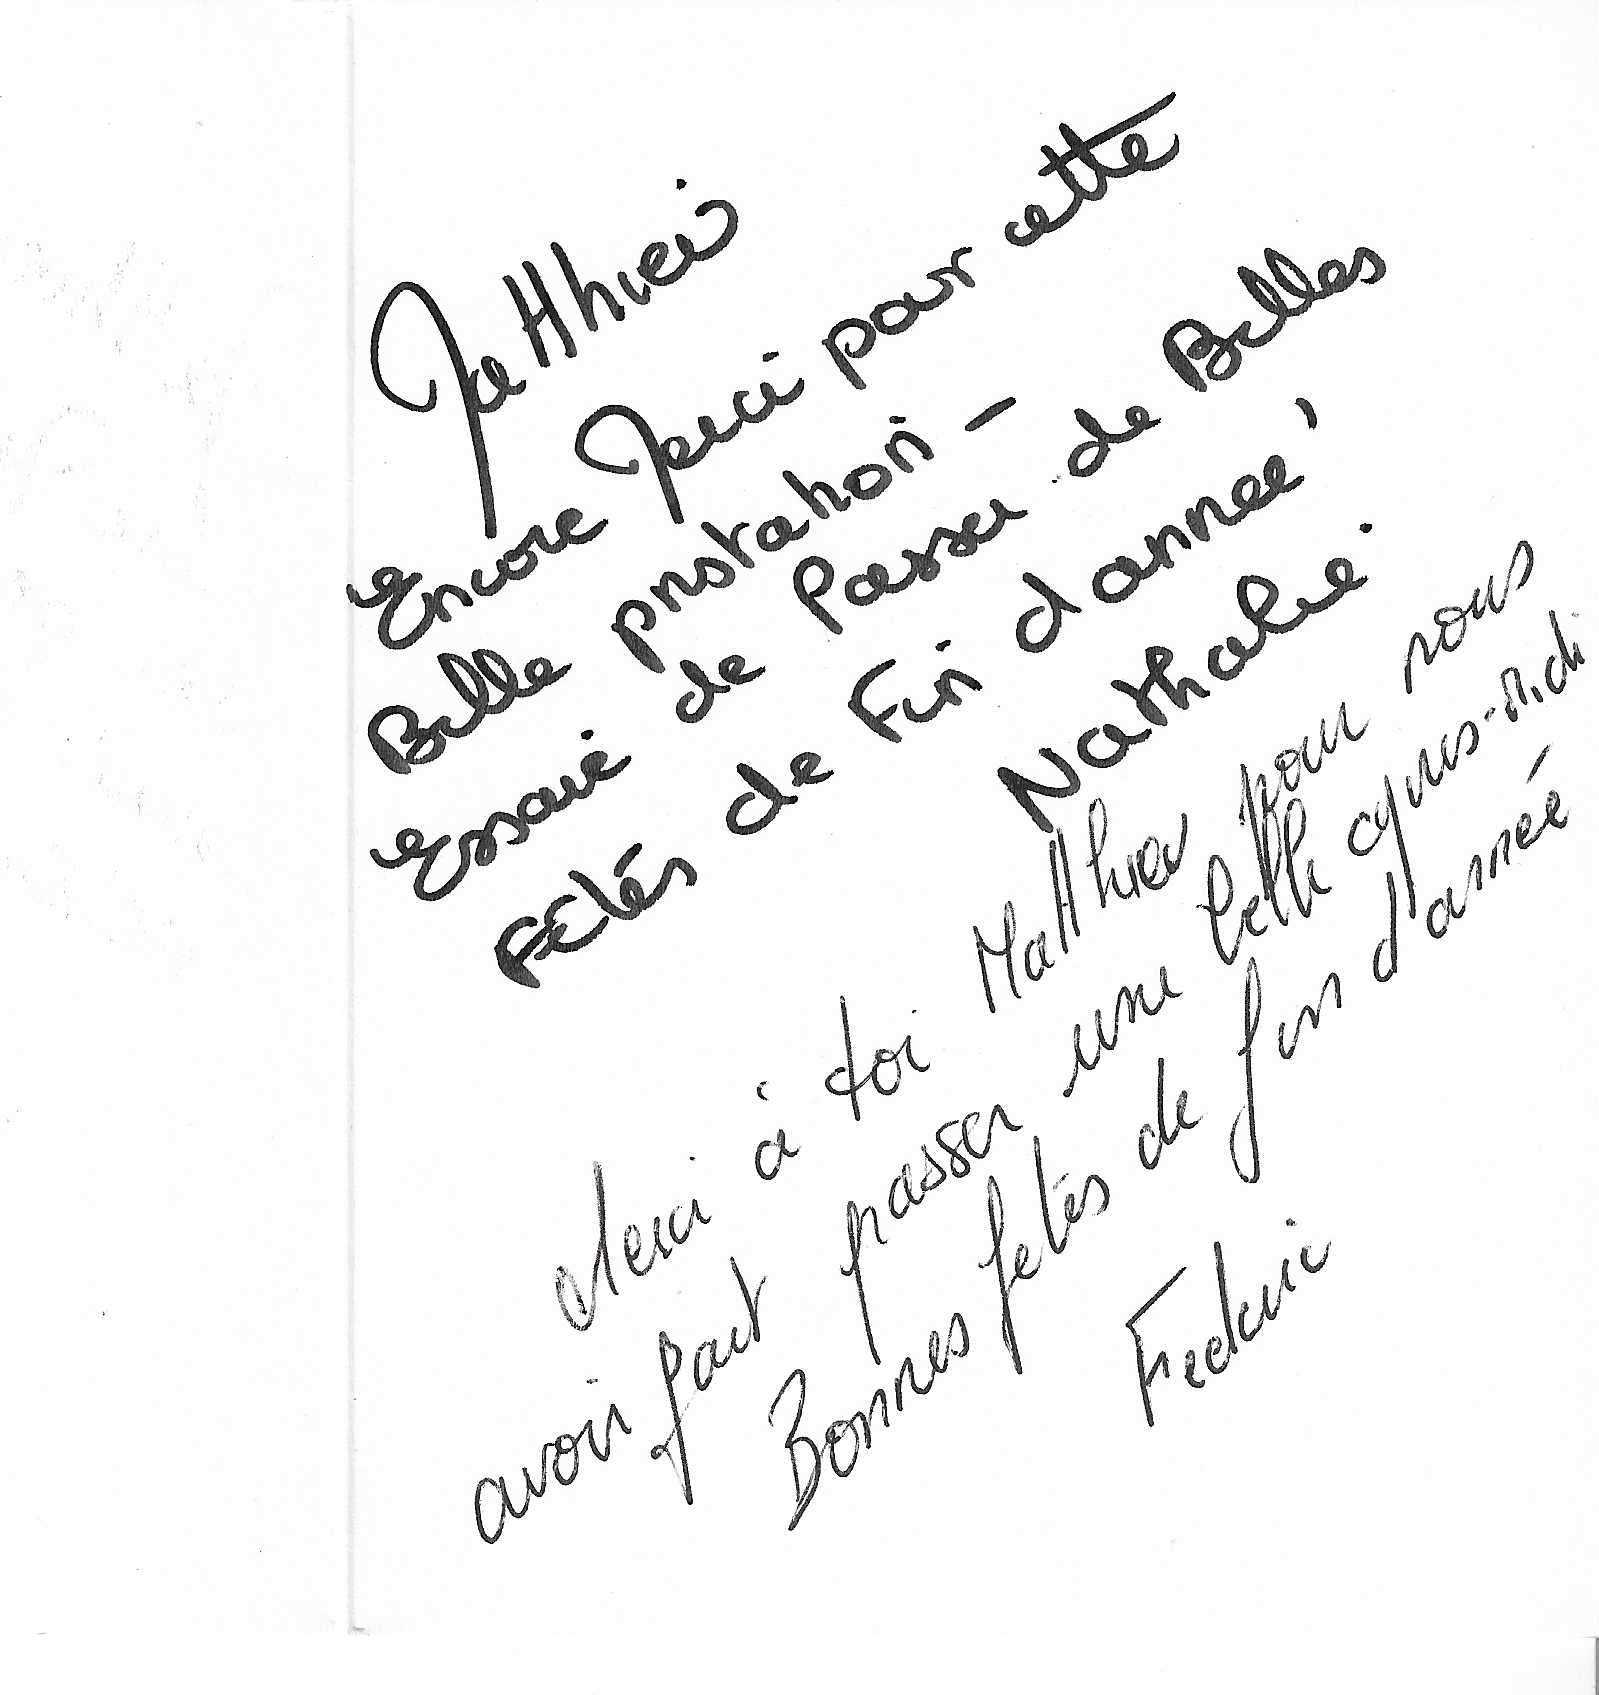 Matthieu
Encore Merci pour cette
Belle prestation -
Essaie de Passer de Belles
Fêtes de Fin d'année,
Nathalie.
Merci à toi Matthieu pour nous
avoir fait passer une belle après-midi
Bonnes fetes de fin d'année
Frederic